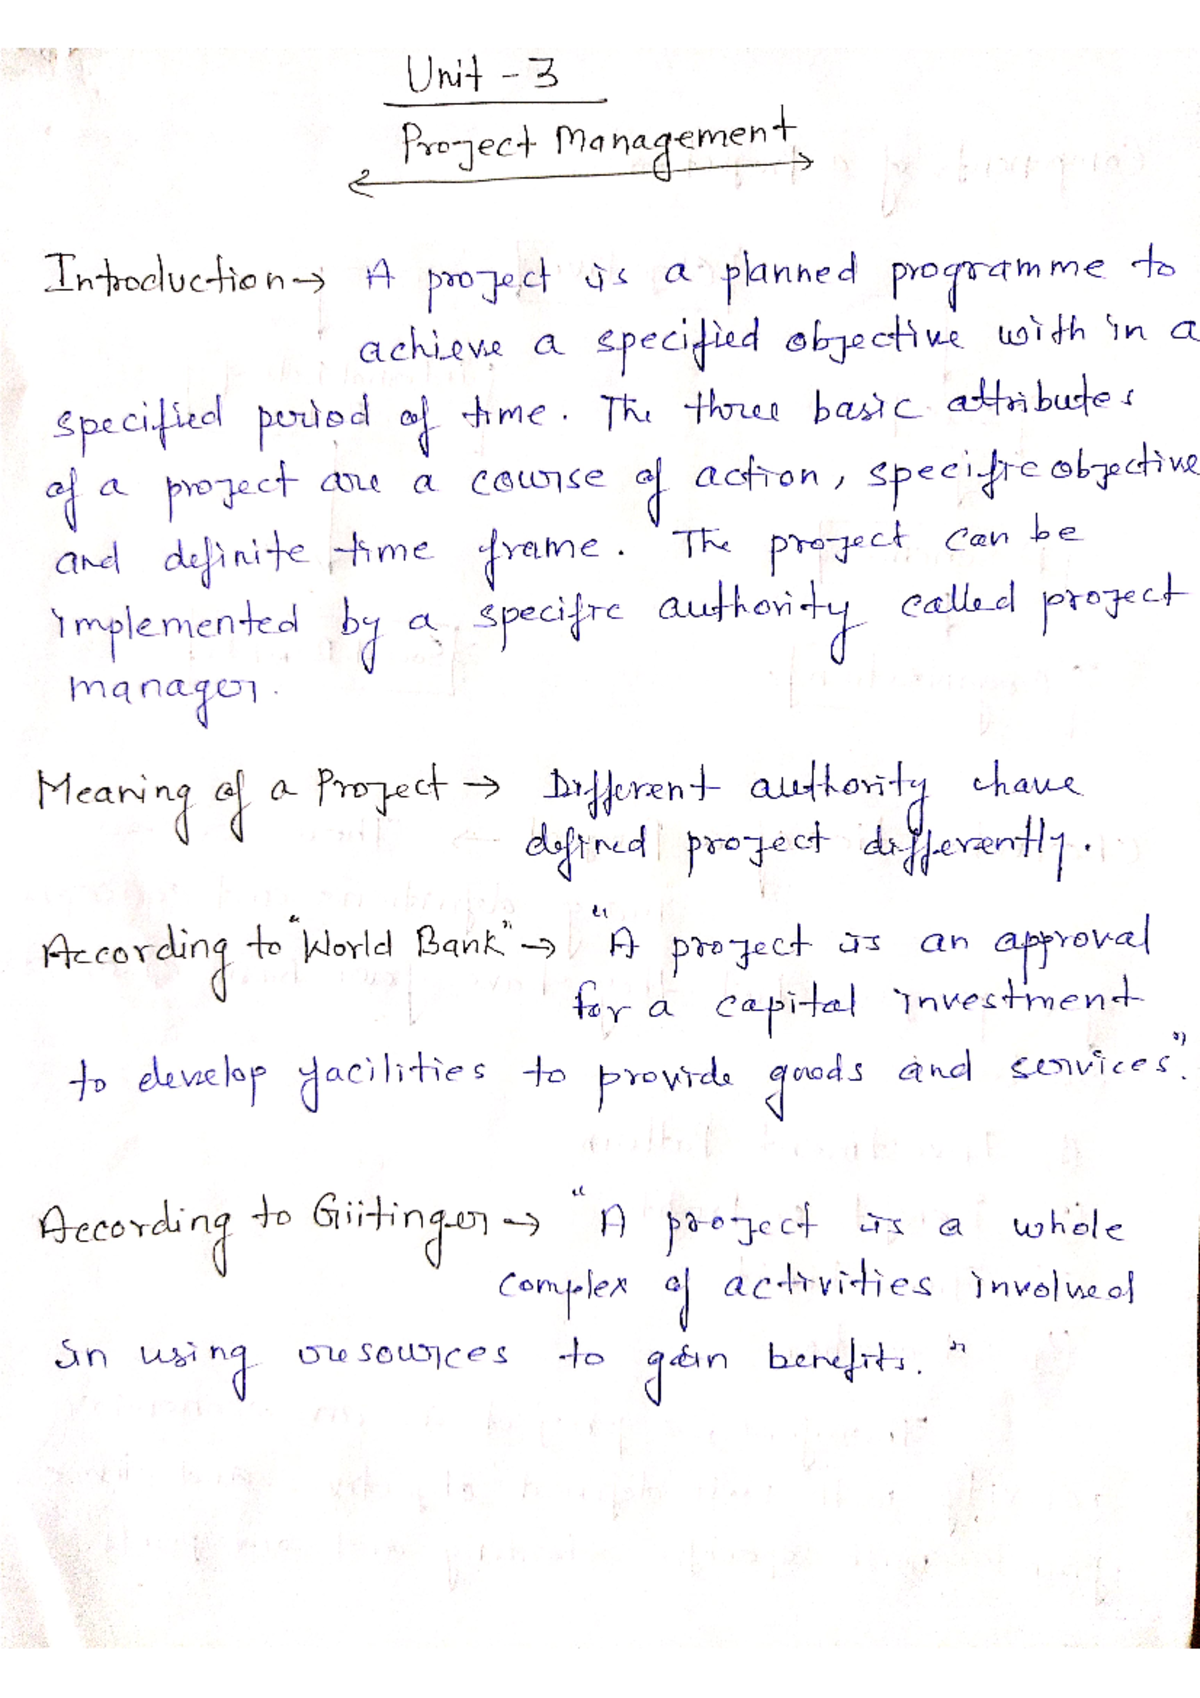 Unit - 3
Project Management
Introduction → A project is a planned programme to
achieve a specified objective with in a
specified period of time. The three basic attributes
of a project are a course of action, specific objective
and definite time frame. The project can be
implemented by a specific authority called project
manager.
Meaning of a Project → Different authority have
defined project differently.
According to "World Bank" → "A project is an approval
for a capital investment
to develop facilities to provide goods and services".
According to Giitinger → "A project is a whole
complex of activities involved
in using resources to gain benefits."